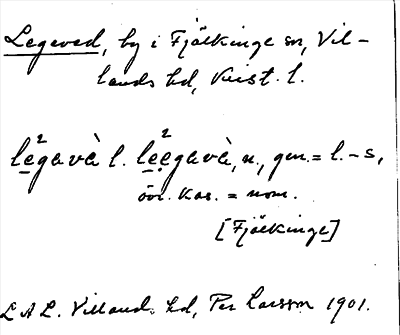 Legeved, by i Fjälkinge sn, Vil-
lands hd, Krist. l.
lega²và l. lee²gavà, n., gen. = l. -s,
öv. kas. = nom.
[Fjälkinge]
LAL. Villands hd, Per Larsson 1901.